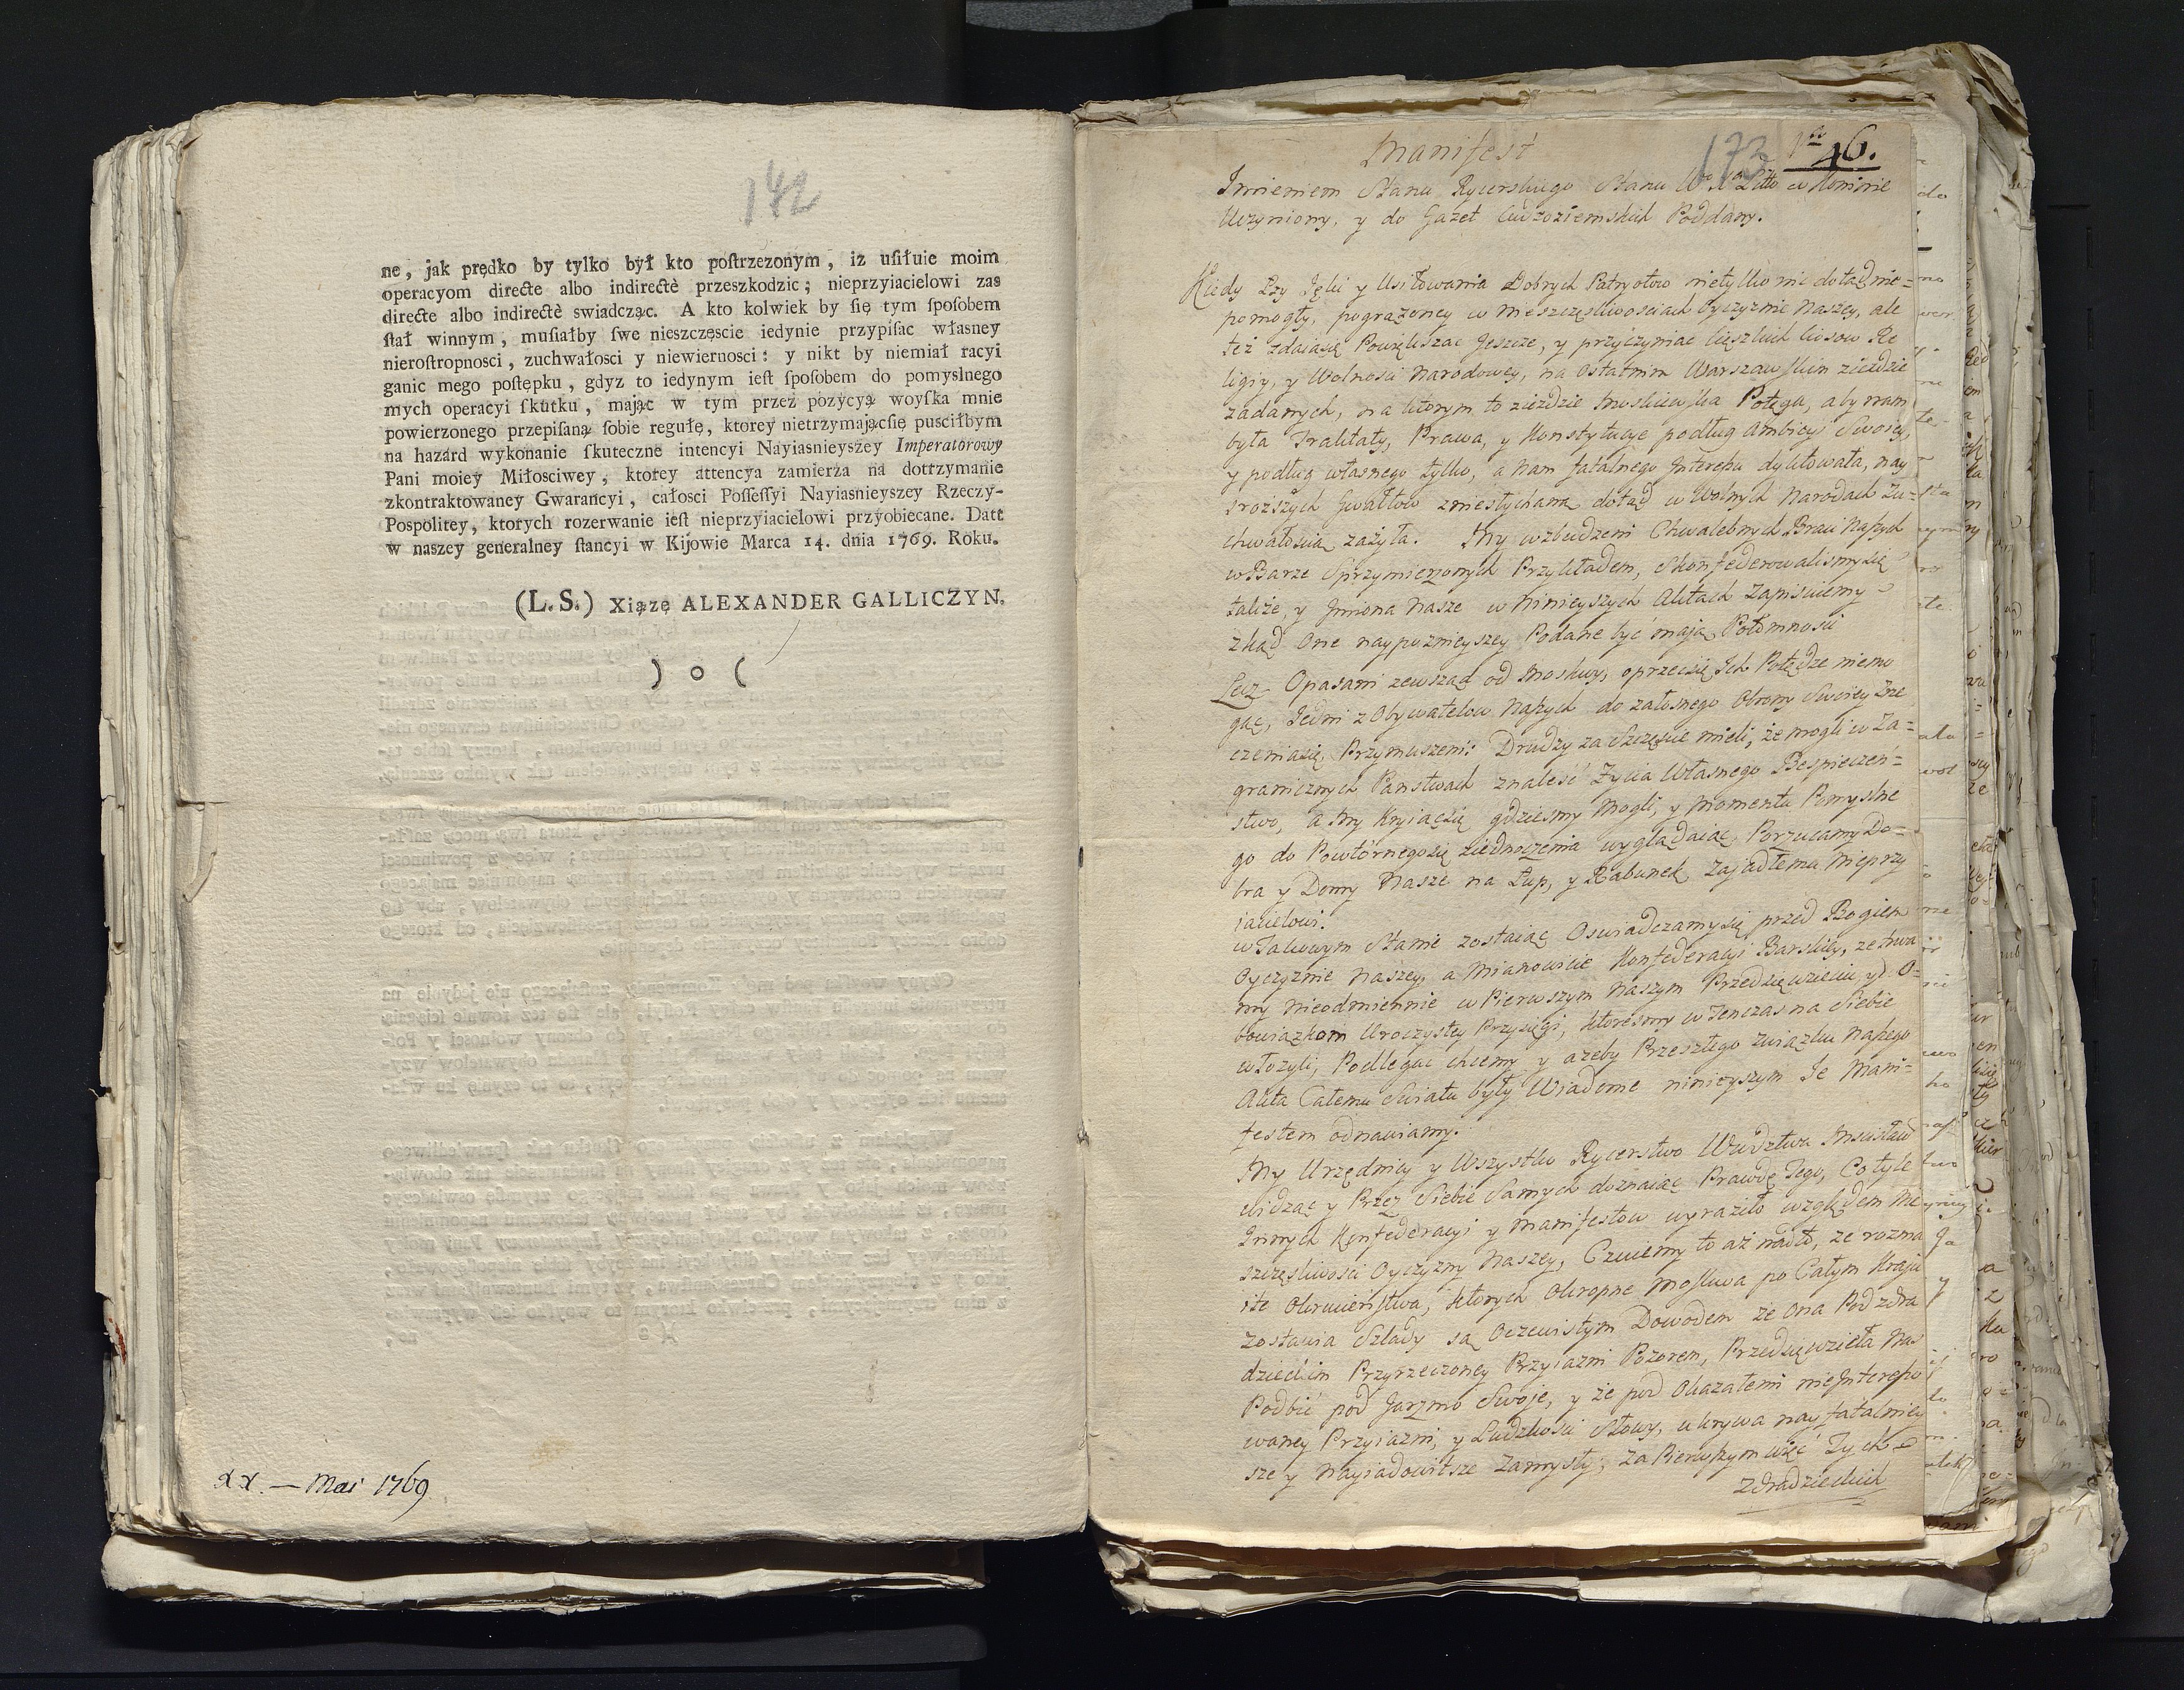 142
ne, jak prędko by tylko był kto poſtrzezonym, iz uſiłuie moim
operacyom directe albo indirectè przeszkodzic; nieprzyiacielowi zas
directe albo indirectè swiadcząc. A kto kolwiek by ſię tym ſpoſobem
ſtał winnym, muſiałby ſwe nieszczęscie iedynie przypiſac własney
nieroſtropnosci, zuchwałosci y niewiernosci: y nikt by niemiał racyi
ganic mego poſtępku, gdyz to iedynym ieſt ſpoſobem do pomyslnego
mych operacyi ſkutku, mając w tym przez pozycyą woyſka mnie
powierzonego przepiſaną ſobie regułę, ktorey nietrzymającſię pusciłbym
na hazard wykonanie ſkuteczne intencyi Nayiasnieyszey Imperatorowy
Pani moiey Miłosciwey, ktorey attencya zamierza na dottrzymanie
zkontraktowaney Gwarancyi, całosci Poſſeſſyi Nayiasnieyszey Rzeczy-
Pospolitey, ktorych rozerwanie ieſt nieprzyiacielowi przyobiecane. Datt
w naszey generalney ſtancyi w Kijowie Marca 14. dnia 1769. Roku.
(L.S.) Xiązę ALEXANDER GALLICZYN.
) o (
XX. — Mai 1769
Manifest
173
46.
Imieniem Stanu Rycerskiego Stanu W Litto w Kominie
Uczyniony, y do Gazet Cudzoziemskich Poddany.
Kiedy Łzy Jęki y Usiłowania Dobrych Patryotow nietylko nic dotąd nie=
pomogły, pogrążoney w nieszczęsliwosciach Oyczyznie Naszey, ale
też zdaiasię Powiększac Jeszcze, y przyczyniac Cięszkich Ciosow Re
ligiy, y Wolnosci Narodowey, na Ostatnim Warszawskim zieździe
zadanych, na ktorym to zieździe Moskiewska Potęga, aby nam
była Traktaty, Prawa, y Konstytucye podług Ambicyi Swoiey,
y podług własnego tylko, a Nam fatalnego Interessu dyktowała, nay
srozszych Gwałtow zniesłychana dotąd w Wolnych Narodach Zu=
chwałoscią zażyła. My wzbudzeni Chwalebnych Braci Naszych
w Barze Sprzymierzonych Przykładem, Skonfederowalismysię
także, y Jmiona Nasze w Ninieyszych Aktach Zapisuiemy
zkąd One naypoznieyszey Podane być maią Potomnosci
Lecz Opasani zewsząd od Moskwy, oprzecsię Ich Potędze niemo
gąc, Jedni z Obywatelow Naszych do załosnego Obrony Swoiey Zrze
czeniasię Przymuszeni: Drudzy za Szczęscie mieli, że mogli w Za=
granicznych Panstwach znaleść Życia Własnego Bespieczeń=
stwo, a My Kryiącsię gdziesmy Mogli, y Momentu Pomyslne
go do Powtórnegosię ziednoczenia wyglądaiąc, Porzucamy Do=
bra y Domy Nasze na Łup, y Rabunek Zajadłemu Nieprzy
iacielowi.
w Takowym Stanie zostaiąc Oswiadczamysię przed Bogiem
Oyczyznie Naszey, a Mianowicie Konfederacyi Barskiey, ze trwa
my nieodmiennie w Pierwszym Naszym Przedsięwzieciu y O=
bowiązkom Uroczystey Przysięgi, ktoresmy w Tenczas na Siebie
włożyli, Podlegac chcemy y azeby Przeszłego Związku Naszego
Akta Całemu Swiatu były Wiadome ninieyszym Je Mani=
festem odnawiamy.
My Urzędnicy y Wszystko Rycerstwo Wdztwa Mscisław
Widząc y Przez Siebie Samych doznaiąc Prawdę Tego, Co tyle
Innych Konfederacyi y Manifestow wyraziło względem Nie
szczęsliwosci Oyczyzny Naszey, Czuiemy to aż nadto, ze rozma
ite Okrucieństwa, ktorych Okropne Moskwa po Całym Kraju
zostawia Slady są Oczewistym Dowodem że Ona Pod zdra
dzieckim Przyrzeczoney Przyiazni Pozorem, Przedsięwzieła Nas
Podbić pod Jarzmo Swoje, y że pod Okazałemi nieInteresso
waney Przyiazni, y Ludzkosci Słowy, ukrywa nayfatalniey
sze y Nayiadowitsze Zamysły; Za Pierwszym więć Tych
Zdradzieckich